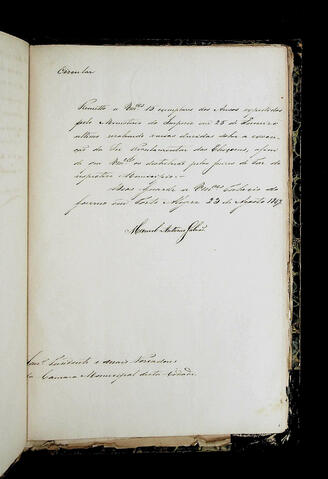 Circular
Remetto a Vmces 18 exemplares dos Avisos expedidos
pelo Ministerio do Imperio em 25 de Janeiro
ultimo resolvendo varias duvidas sobre a execu-
ção da Lei Regulamentar das Eleiçoens, afim
de que Vmces os destribuão pelos Juizes de Paz do
respectivo Municipio.
Deos Guarde a Vmces Palacio do
Governo em Porto Alegre 23 de Agosto 1847
Manoel Antonio Galvão
Presidente e mais Vereadores
da Camara Municipal desta Cidade